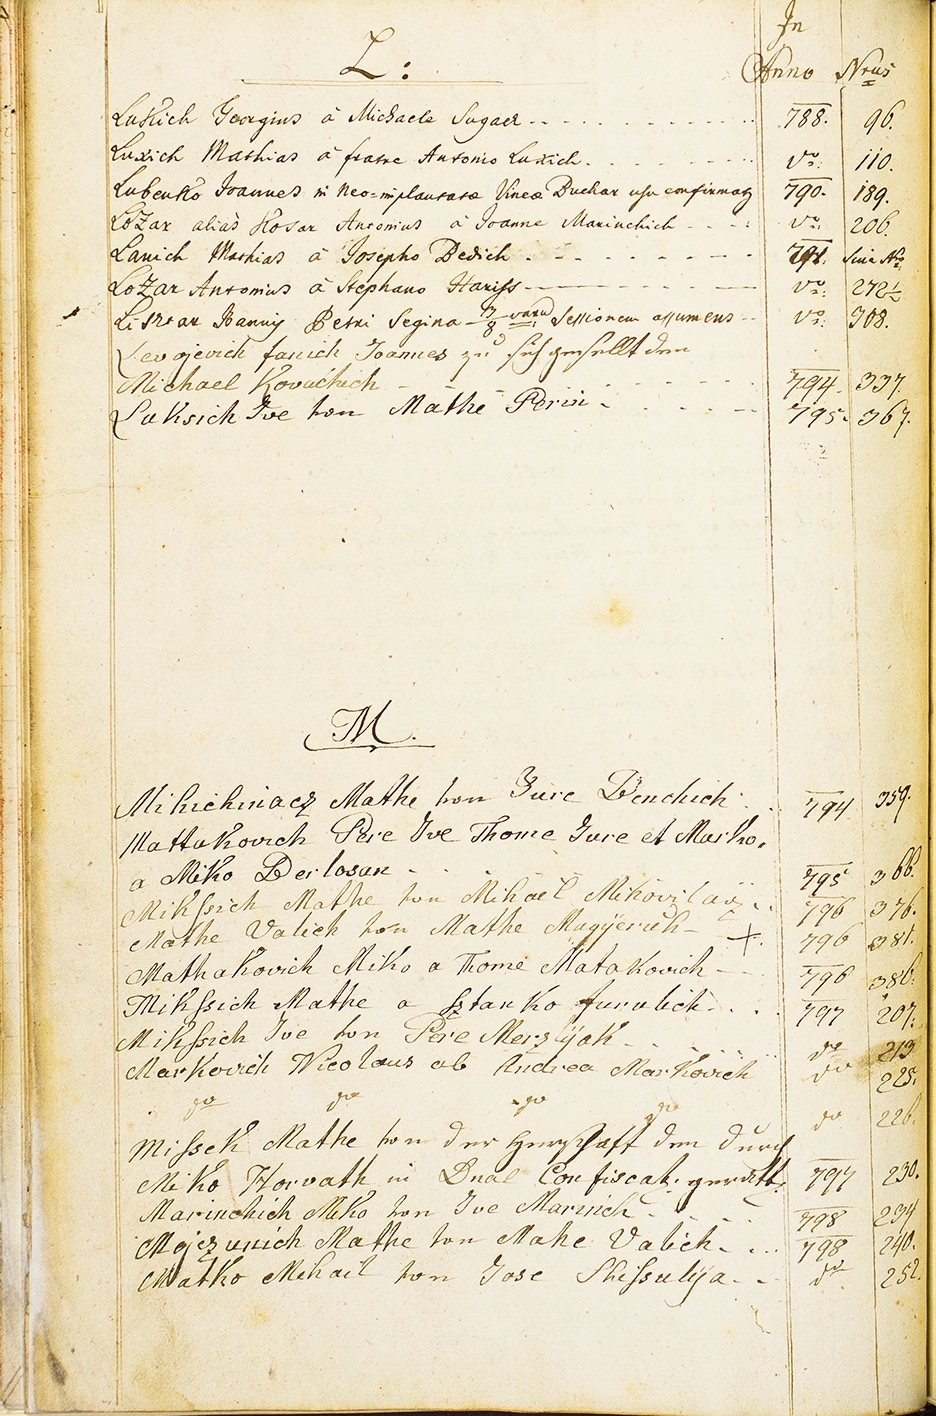 In
L: Anno Nrus
Lukich Georgius à Michaele Sugacz 788. 96.
Luxich Mathias à fratre Antonio Luxich. do. 110.
Lubenko Joannes in Neo-implantatæ Vineæ Duchar usu confirmatg 790. 189.
Lozar alias Kosar Antonius à Joanne Marinchich do. 206.
Lanich Mathias à Josepho Dedich 791. Sine No.
Lozar Antonius à Stephano Hariss do. 272½
Joannis Petri Segina 7/8 Sessionem assumens do. 308.
Levojevich Janich Joannes zu sich gesellt den
Michael Kovachich 794. 337.
Luksich Ive von Mathe Perin 795. 367.
M.
Mihichinacz Mathe von Jure Benchich 794 359.
Mattakovich Pere Ive Thome Jure et Marko.
a Miko Derlosan 795 366.
Mikssich Mathe von Mihael 796 376.
Mathe Valich von Mathe Magyerich + 796 381.
Mathakovich Miko a Thome Matakovich 796 386.
Mikssich Mathe a Sztanko 797 207.
Mikssich Ive von Pere Merzlyak do 213
Markovich Nicolaus ab Andrea Markovich do 225.
do do do do do 226.
Missek Mathe von der Herrschaft den durch
Miko Horvath in Dnal Confiscat. 797 230.
Marinchich Miko von Ive Marinich 798 234
Mathe von Mahe Valich 798 240.
Matko Mihail von Jose do 252.